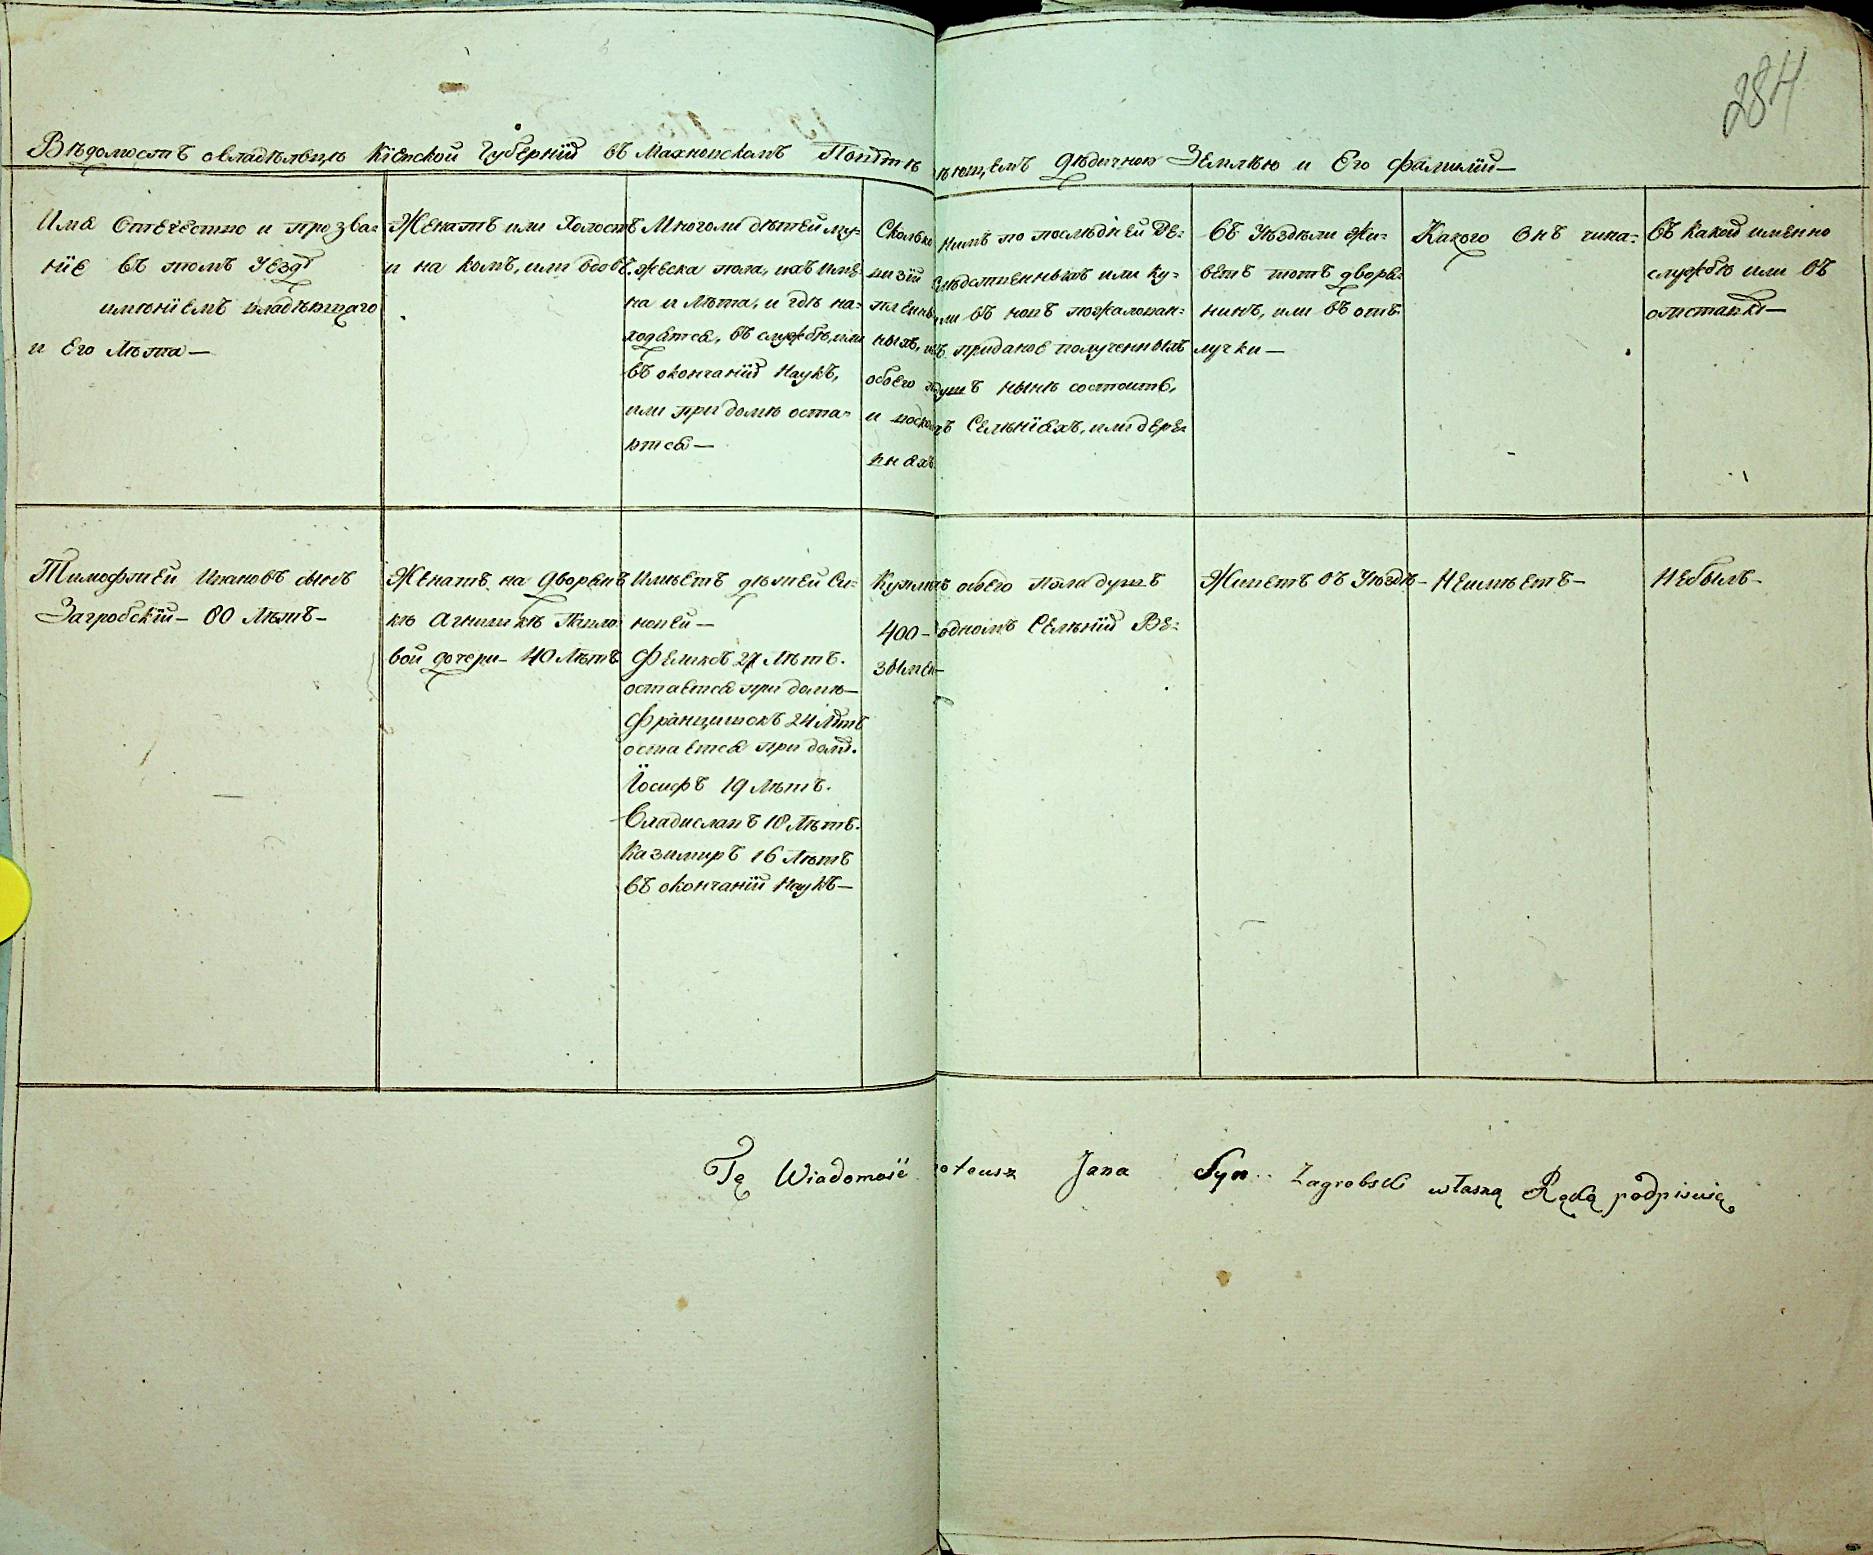 284
Вѣдомость овладѣльцѣ Кіевской Губерніи въ Махновскомъ Повѣтѣ
ющемъ дѣдичною Землѣю и Его фамиліи—
Имя Отечество и прозва=
ніе въ томъ Уѣздѣ
имѣніемъ владѣющаго
и Его Лѣта—
Женатъ или Холостъ
и на комъ, или вдовъ.
Многоли дѣтей му=
жеска пола, ихъ име=
на и Лѣта, и где на=
ходятся, въ службѣ, или
въ окончаніи Наукъ,
или при домѣ оста=
ются—
Сколько
нимъ по послѣдней Ре=
визіи
слѣдственныхъ или ку=
или въ новъ пожалован=
ныхъ,
приданое полученныхъ
обоего
душъ нынѣ состоитъ,
и
Селѣніяхъ, или дере=
вняхъ
Въ Уѣздѣли жи=
ветъ тотъ дворя=
нинъ, или въ отъ=
лучки—
Какого Онъ чина=
Въ какой именно
службѣ или въ
отставкѣ—
Тимофтей Ивановъ сынъ
Загробскій— 60 Лѣтъ—
Женатъ на Дворян
кѣ Агнишкѣ
вой дочери— 40 Лѣтъ
Имѣетъ дѣтей Си=
новей—
Феликсъ 27 Лѣтъ.
остается при домѣ—
Францишокъ 24 Лѣтъ
остается при домѣ.
Іосифъ 19 Лѣтъ.
Владиславъ 18 Лѣтъ.
Казимиръ 16 Лѣтъ
въ окончаніи Наукъ—
обоего пола душъ
400— одномъ Селѣніи Ве=
Живетъ въ Уѣздѣ—
Неимѣетъ—
Небылъ—
Tę Wiadomość oteusz Jana Syn Zagrobski własną Ręką podpisuię